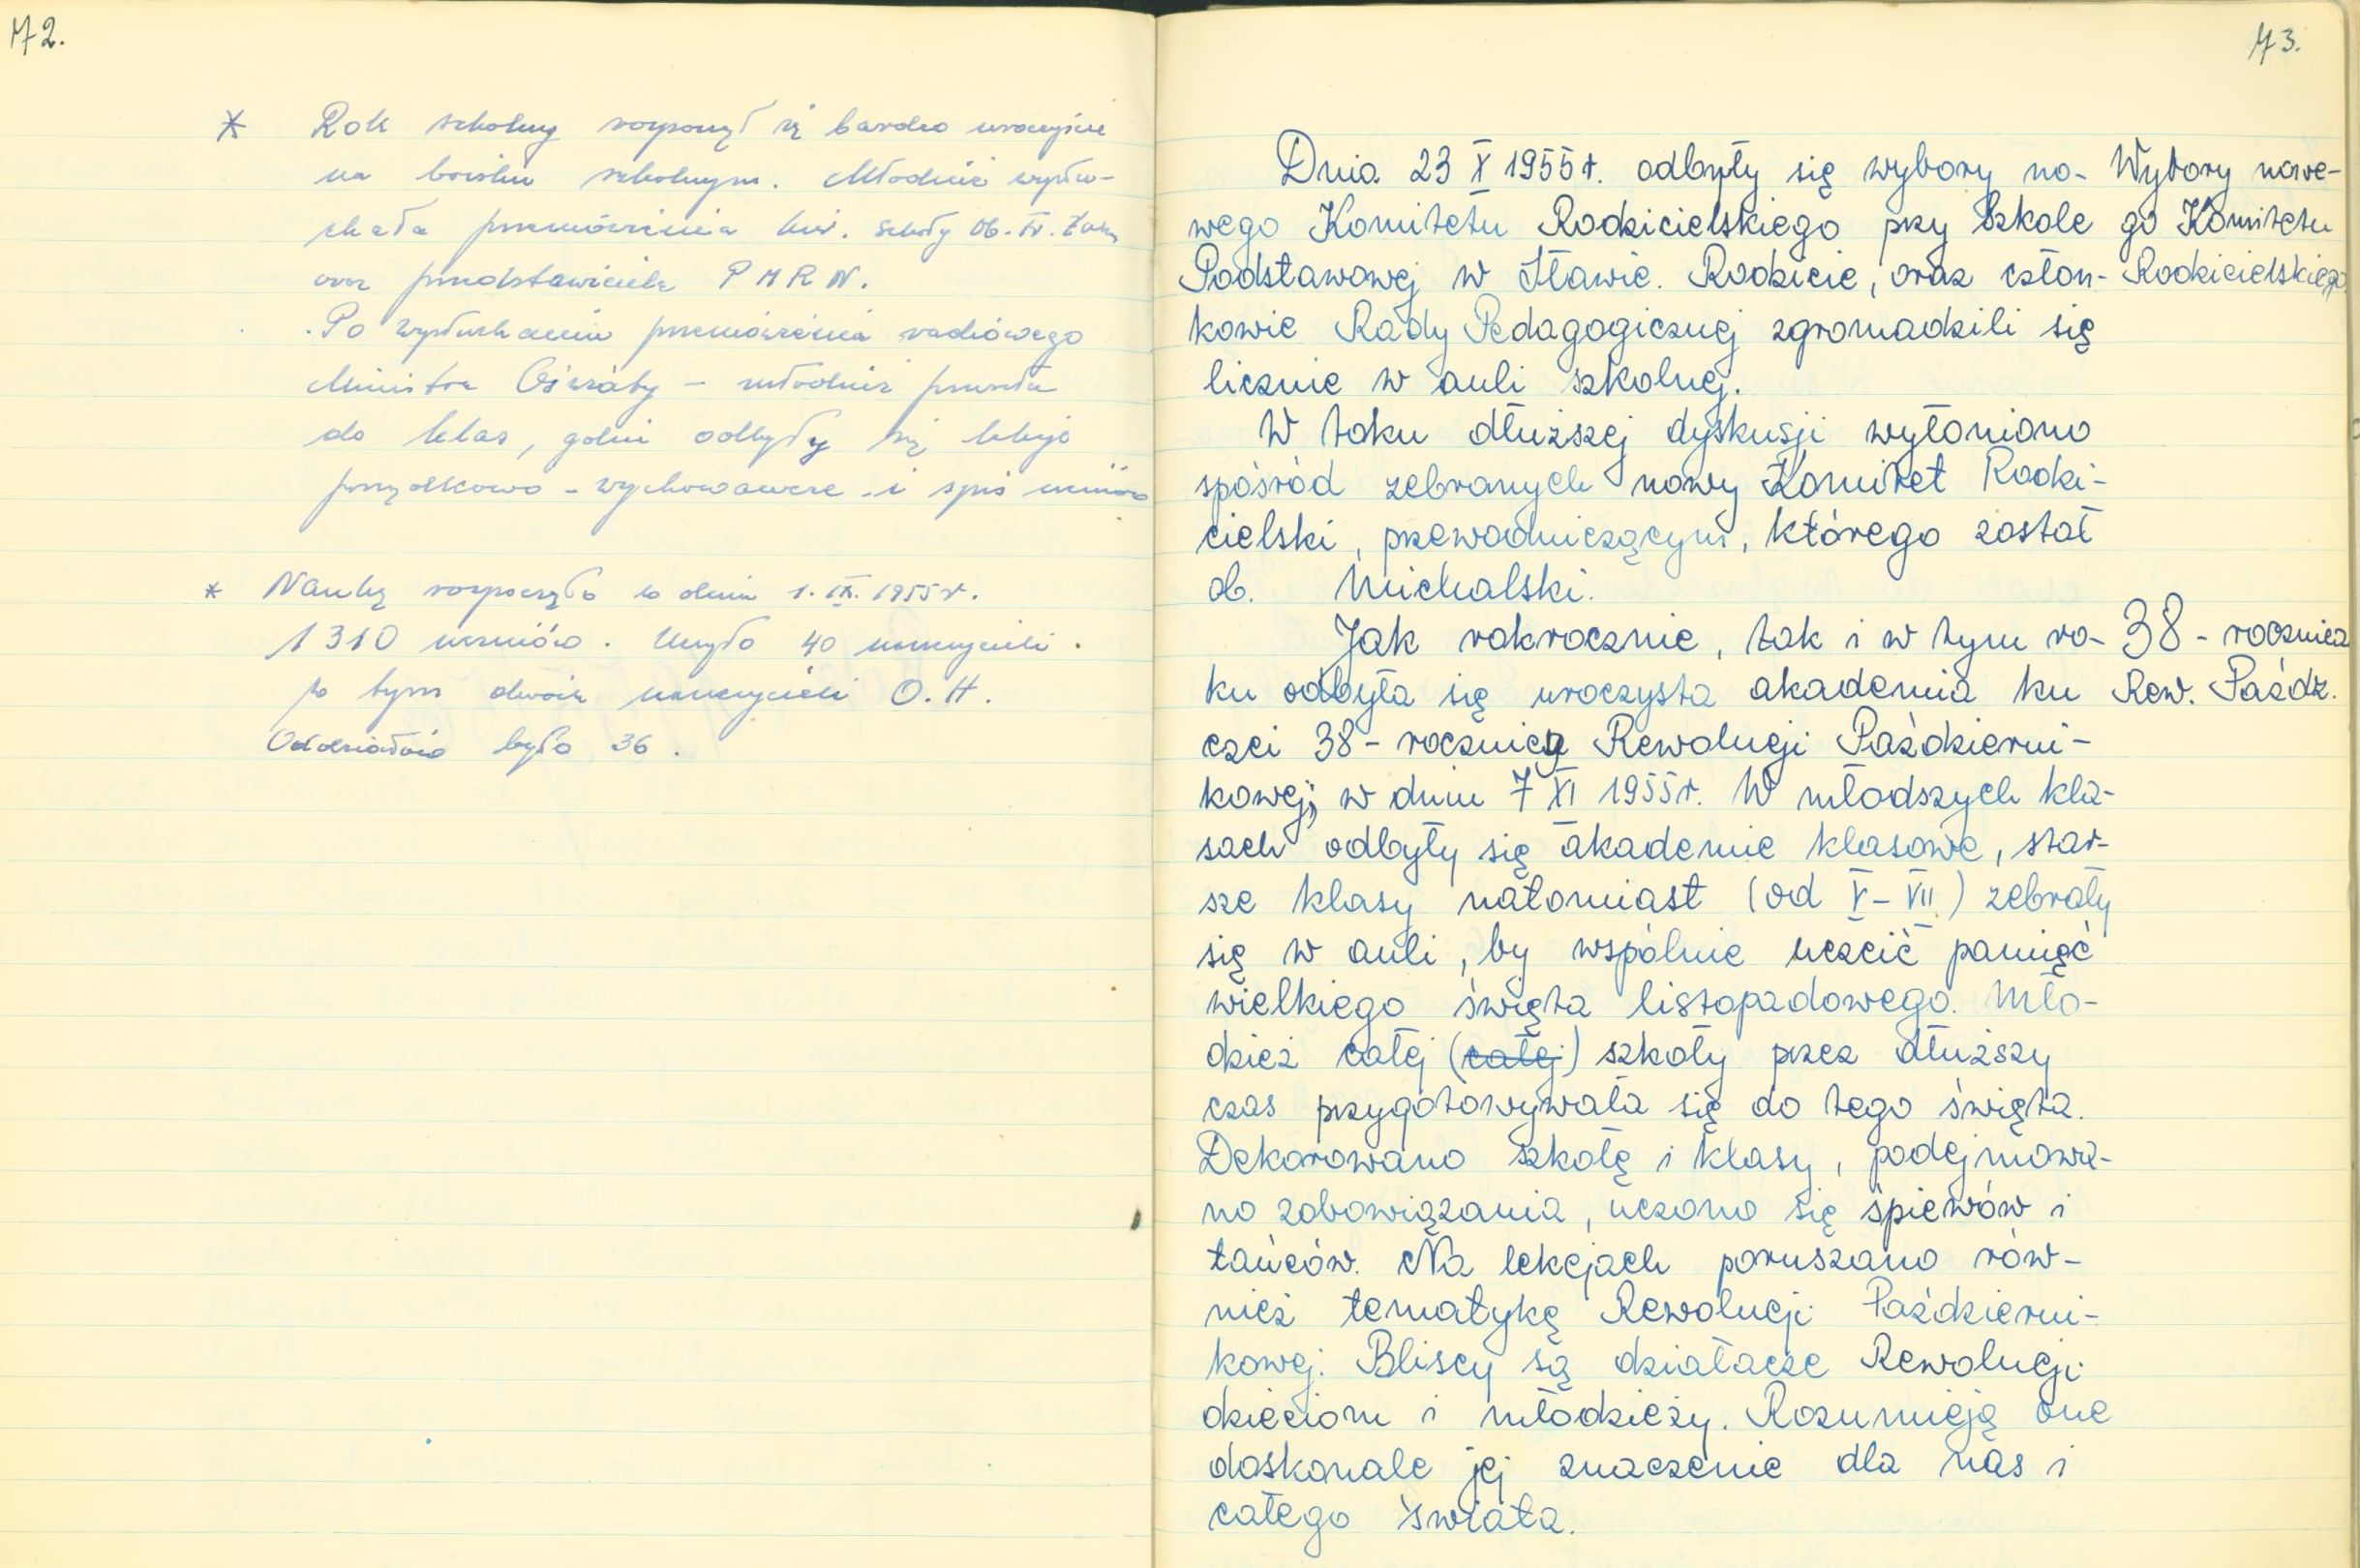 72.
* Rok szkolny rozpoczął się bardzo uroczyście
na boisku szkolnym. Młodzież wysłu-
chała przemówienia kier. szkoły Ob. W.
oraz przedstawiciela P M R N.
Po wysłuchaniu przemówienia radiowego
Ministra Oświaty – młodzież przeszła
do klas, gdzie odbyły się lekcje
porządkowo - wychowawcze i spis uczniów
* Naukę rozpoczęło w dniu 1. IX. 1955 r.
1310 uczniów. Uczyło 40 nauczycieli.
w tym dwoje nauczycieli O. H.
Oddziałów było 36.
73.
Dnia 23 X 1955 r. odbyły się wybory no-
wego Komitetu Rodzicielskiego przy Szkole
Podstawowej w Iławie. Rodzicie, oraz człon-
kowie Rady Pedagogicznej zgromadzili się
licznie w auli szkolnej.
W toku dłuższej dyskusji wyłoniono
spośród zebranych nowy Komitet Rodzi-
cielski, przewodniczącym, którego został
ob. Michalski.
Jak rokrocznie, tak i w tym ro-
ku odbyła się uroczysta akademia ku
czci 38 - rocznicy Rewolucji Październi-
kowej, w dniu 7 XI 1955 r. W młodszych kla-
sach odbyły się akademie klasowe, star-
sze klasy natomiast (od V – VII) zebrały
się w auli, by wspólnie uczcić pamięć
wielkiego święta listopadowego. Mło-
dzież całej (całej) szkoły przez dłuższy
czas przygotowywała się do tego święta.
Dekorowano szkołę i klasy, podejmowa-
no zobowiązania, uczono się śpiewów i
tańców. Na lekcjach poruszano rów-
nież tematykę Rewolucji Październi-
kowej. Bliscy są działacze Rewolucji
dzieciom i młodzieży. Rozumieją one
doskonale jej znaczenie dla nas i
całego świata.
Wybory nowe-
go Komitetu
Rodzicielskiego
38 - rocznica
Rew. Paźdz.